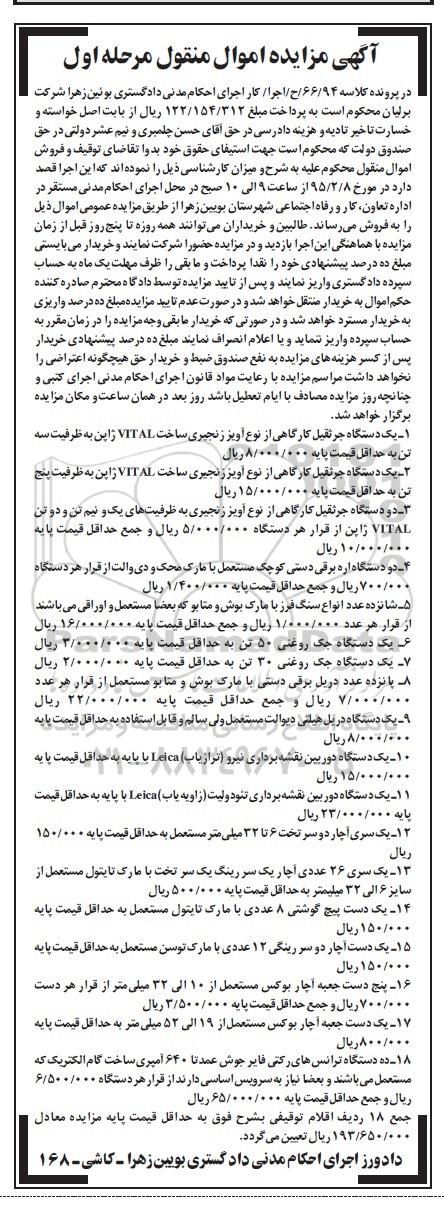 آگهی مزایده اموال منقول مرحله اول
در پرونده کلاسه ۶۶/۹۴/ح/اجرا/ کار اجرای احکام مدنی دادگستری بوئین زهرا شرکت
برلیان محکوم است به پرداخت مبلغ ۱۲۲/۱۵۴/۳۱۲ ریال از بابت اصل خواسته و
خسارت تاخیر تادیه و هزینه دادرسی در حق آقای حسن چلمبری و نیم عشر دولتی در حق
صندوق دولت که محکوم است جهت استیفای حقوق خود بدوا تقاضای توقیف و فروش
اموال منقول محکوم علیه به شرح و میزان کارشناسی ذیل را نموده‌اند که این اجرا قصد
دارد در مورخ ۹۵/۲/۸ از ساعت ۹ الی ۱۰ صبح در محل اجرای احکام مدنی مستقر در
اداره تعاون، کار و رفاه اجتماعی شهرستان بویین زهرا از طریق مزایده عمومی اموال ذیل
را به فروش می‌رساند. طالبین و خریداران می‌توانند همه روزه تا پنج روز قبل از زمان
مزایده با هماهنگی این اجرا بازدید و در مزایده حضورا شرکت نمایند و خریدار می‌بایستی
مبلغ ده درصد پیشنهادی خود را نقدا پرداخت و مابقی را ظرف مهلت یک ماه به حساب
سپرده دادگستری واریز نمایند و پس از تایید مزایده توسط دادگاه محترم صادره کننده
حکم اموال به خریدار منتقل خواهد شد و در صورت عدم تایید مزایده مبلغ ده درصد واریزی
به خریدار مسترد خواهد شد و در صورتی که خریدار مابقی وجه مزایده را در زمان مقرر به
حساب سپرده واریز ننماید و یا اعلام انصراف نمایند مبلغ ده درصد پیشنهادی خریدار
پس از کسر هزینه‌های مزایده به نفع صندوق ضبط و خریدار حق هیچگونه اعتراضی را
نخواهد داشت مراسم مزایده با رعایت مواد قانون اجرای احکام مدنی اجرای کتبی و
چنانچه روز مزایده مصادف با ایام تعطیل باشد روز بعد در همان ساعت و مکان مزایده
برگزار خواهد شد.
۱ـ یک دستگاه جرثقیل کارگاهی از نوع آویز زنجیری ساخت VITAL ژاپن به ظرفیت سه
تن به حداقل قیمت پایه ۸/۰۰۰/۰۰۰ ریال
۲ـ یک دستگاه جرثقیل کارگاهی از نوع آویز زنجیری ساخت VITAL ژاپن به ظرفیت پنج
تن به حداقل قیمت پایه ۱۵/۰۰۰/۰۰۰ ریال
۳ـ دو دستگاه جرثقیل کارگاهی از نوع آویز زنجیری به ظرفیت‌های یک و نیم تن و دو تن
VITAL ژاپن از قرار هر دستگاه ۵/۰۰۰/۰۰۰ ریال و جمع حداقل قیمت پایه
۱۰/۰۰۰/۰۰۰ ریال
۴ـ دو دستگاه اره برقی دستی کوچک مستعمل با مارک محک و دی والت از قرار هر دستگاه
۷۰۰/۰۰۰ ریال و جمع حداقل قیمت پایه ۱/۴۰۰/۰۰۰ ریال
۵ـ شانزده عدد انواع سنگ فرز با مارک بوش و متابو که بعضا مستعمل و اوراقی می‌باشند
از قرار هر عدد ۱/۰۰۰/۰۰۰ ریال و جمع حداقل قیمت پایه ۱۶/۰۰۰/۰۰۰ ریال
۶ـ یک دستگاه جک روغنی ۵۰ تن به حداقل قیمت پایه ۳/۰۰۰/۰۰۰ ریال
۷ـ یک دستگاه جک روغنی ۳۰ تن به حداقل قیمت پایه ۲/۰۰۰/۰۰۰ ریال
۸ـ پانزده عدد دریل برقی دستی با مارک بوش و متابو مستعمل از قرار هر عدد
۷/۰۰۰/۰۰۰ ریال و جمع حداقل قیمت پایه ۲۲/۰۰۰/۰۰۰ ریال
۹ـ یک دستگاه دریل هیلتی دیوالت مستعمل ولی سالم و قابل استفاده به حداقل قیمت پایه
۸/۰۰۰/۰۰۰ ریال
۱۰ـ یک دستگاه دوربین نقشه برداری نیرو (ترازیاب) Leica با پایه به حداقل قیمت پایه
۱۵/۰۰۰/۰۰۰ ریال
۱۱ـ یک دستگاه دوربین نقشه برداری تئودولیت (زاویه یاب) Leica با پایه به حداقل قیمت
پایه ۲۳/۰۰۰/۰۰۰ ریال
۱۲ـ یک سری آچار دو سر تخت ۶ تا ۳۲ میلی متر مستعمل به حداقل قیمت پایه ۱۵۰/۰۰۰
ریال
۱۳ـ یک سری ۲۶ عددی آچار یک سر رینگ یک سر تخت با مارک تایتول مستعمل از
سایز ۶ الی ۳۲ میلیمتر به حداقل قیمت پایه ۵۰۰/۰۰۰ ریال
۱۴ـ یک دست پیچ گوشتی ۸ عددی با مارک تایتول مستعمل به حداقل قیمت پایه
۱۵۰/۰۰۰ ریال
۱۵ـ یک دست آچار دو سر رینگی ۱۲ عددی با مارک توسن مستعمل به حداقل قیمت پایه
۱۵۰/۰۰۰ ریال
۱۶ـ پنج دست جعبه آچار بوکس مستعمل از ۱۰ الی ۳۲ میلی متر از قرار هر دست
۷۰۰/۰۰۰ ریال و جمع حداقل قیمت پایه ۳/۵۰۰/۰۰۰ ریال
۱۷ـ یک دست جعبه آچار بوکس مستعمل از ۱۹ الی ۵۲ میلی متر به حداقل قیمت پایه
۸۰۰/۰۰۰ ریال
۱۸ـ ده دستگاه ترانس‌های رکتی فایر جوش عمدتا ۶۴۰ آمپری ساخت گام الکتریک که
مستعمل می‌باشند و بعضا نیاز به سرویس اساسی دارند از قرار هر دستگاه ۶/۵۰۰/۰۰۰
ریال و جمع حداقل قیمت پایه ۶۵/۰۰۰/۰۰۰ ریال
جمع ۱۸ ردیف اقلام توقیفی بشرح فوق به حداقل قیمت پایه مزایده معادل
۱۹۳/۶۵۰/۰۰۰ ریال تعیین می‌گردد.
دادورز اجرای احکام مدنی دادگستری بویین زهرا ـ کاشی ـ ۱۶۸